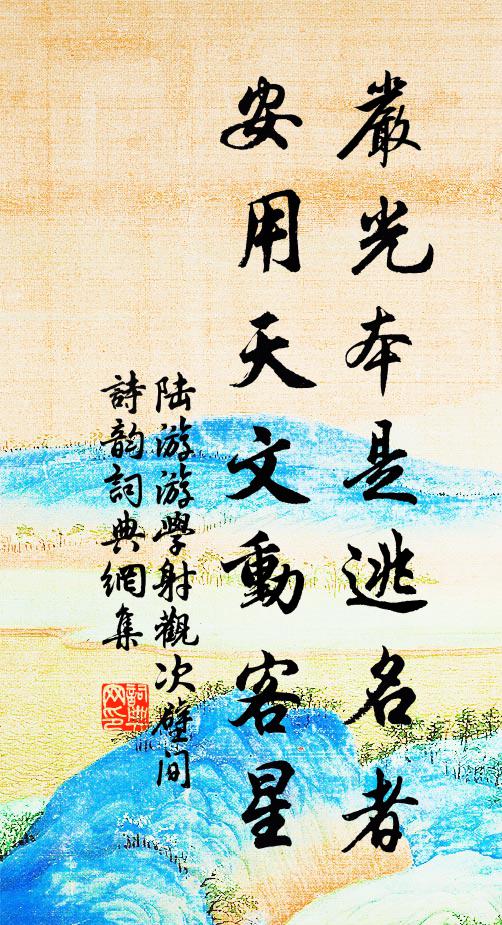 嚴光本是逃名者
安用天文動客星
陆游游學射觀次壁间
詩韵詞典網集